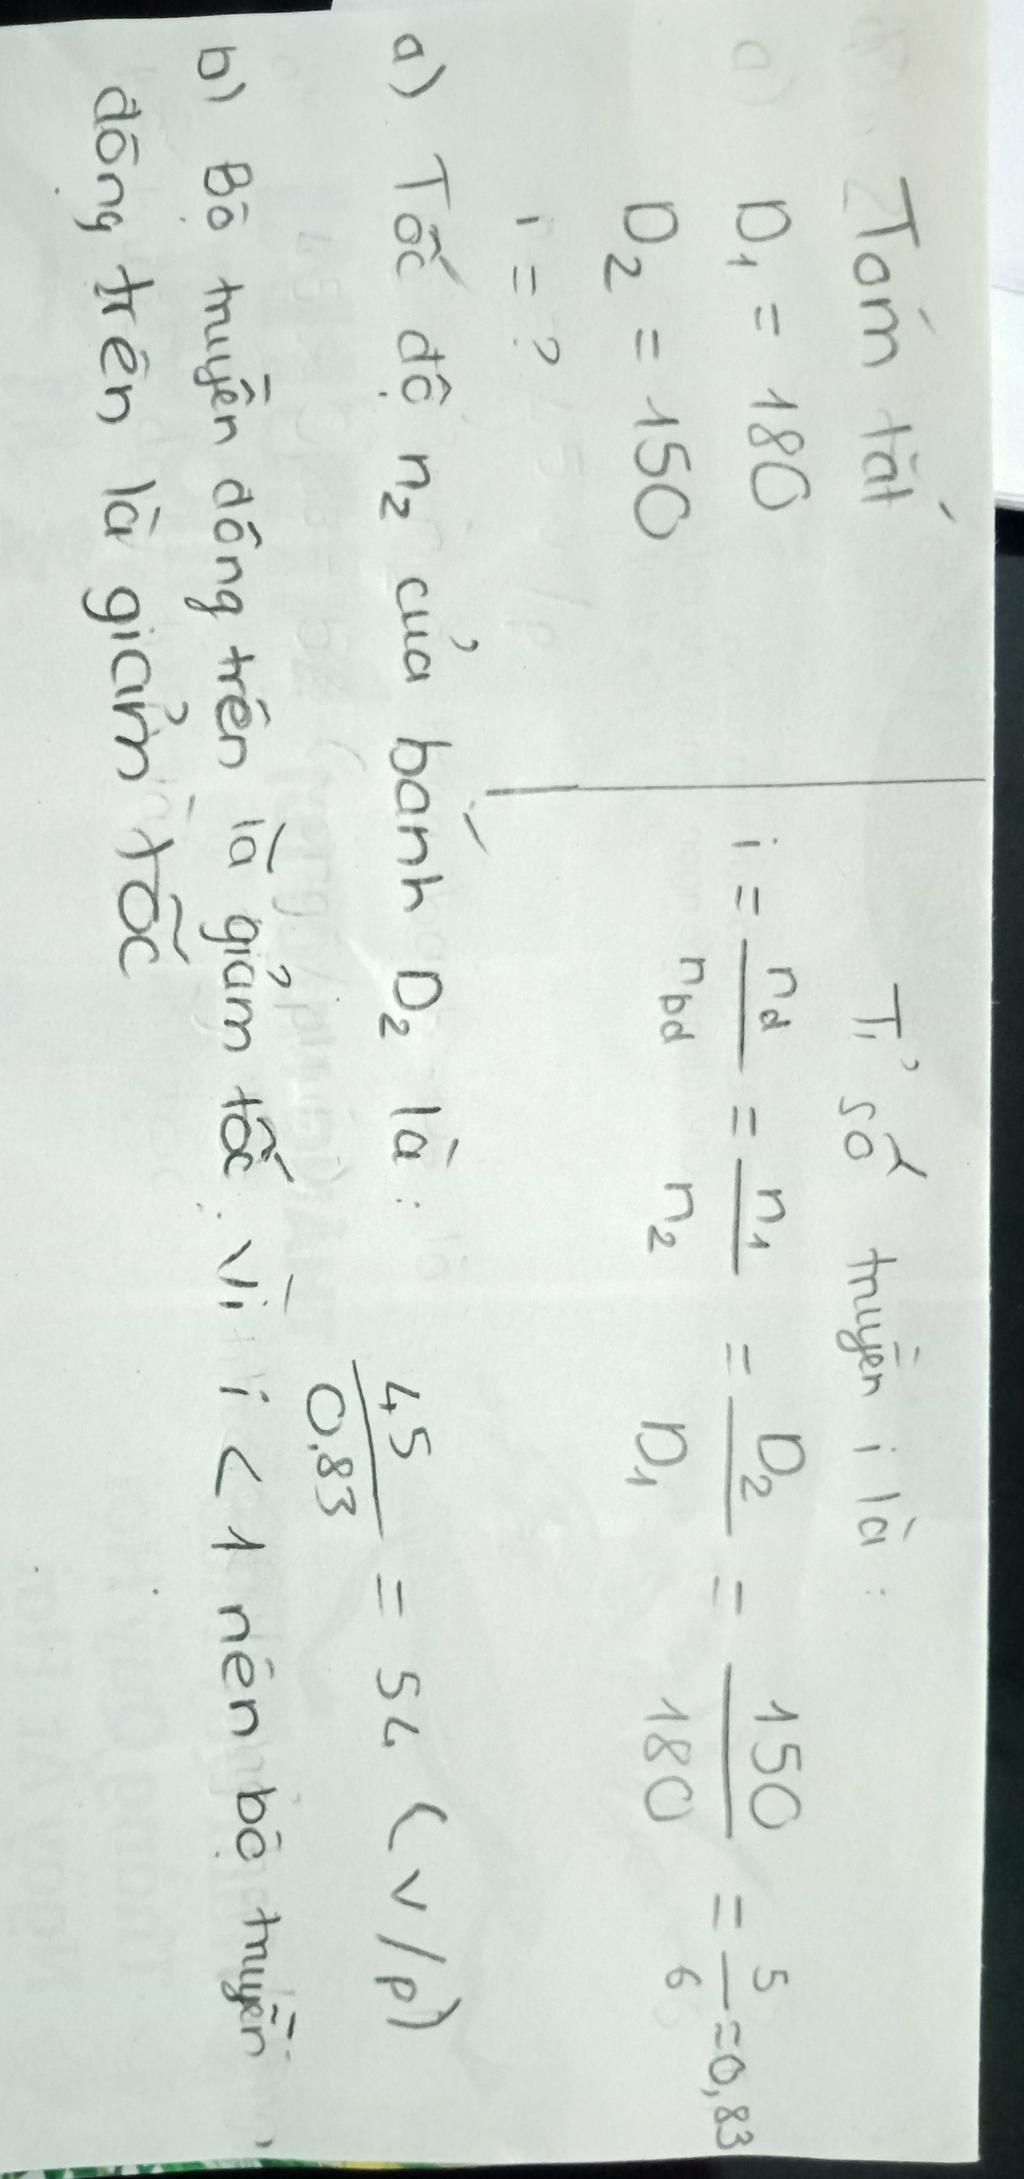 Tóm tắt
D1 = 180
D2 = 150
i = ?
Tỉ số truyền i là:
i = nd/nbd = n1/n2 = D2/D1 = 150/180 = 5/6 = 0,83
a) Tốc độ n2 của bánh D2 là: 45/0,83 = 54 (v/p)
b) Bộ truyền đông trên là giảm tốc. Vì i < 1 nên bộ truyền
động trên là giảm tốc